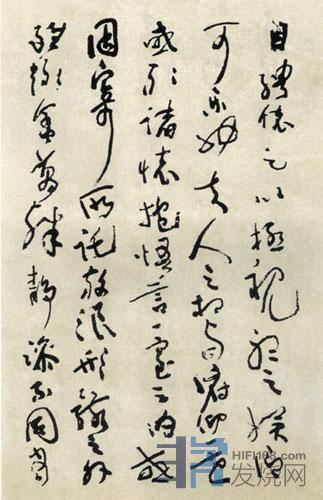 目騁懷足以極視聽之娛信
可樂也夫人之相與俯仰一世
或取諸懷抱悟言一室之內或
因寄所託放浪形骸之外
雖趣舍萬殊靜躁不同當
HIFI168.com
发烧网